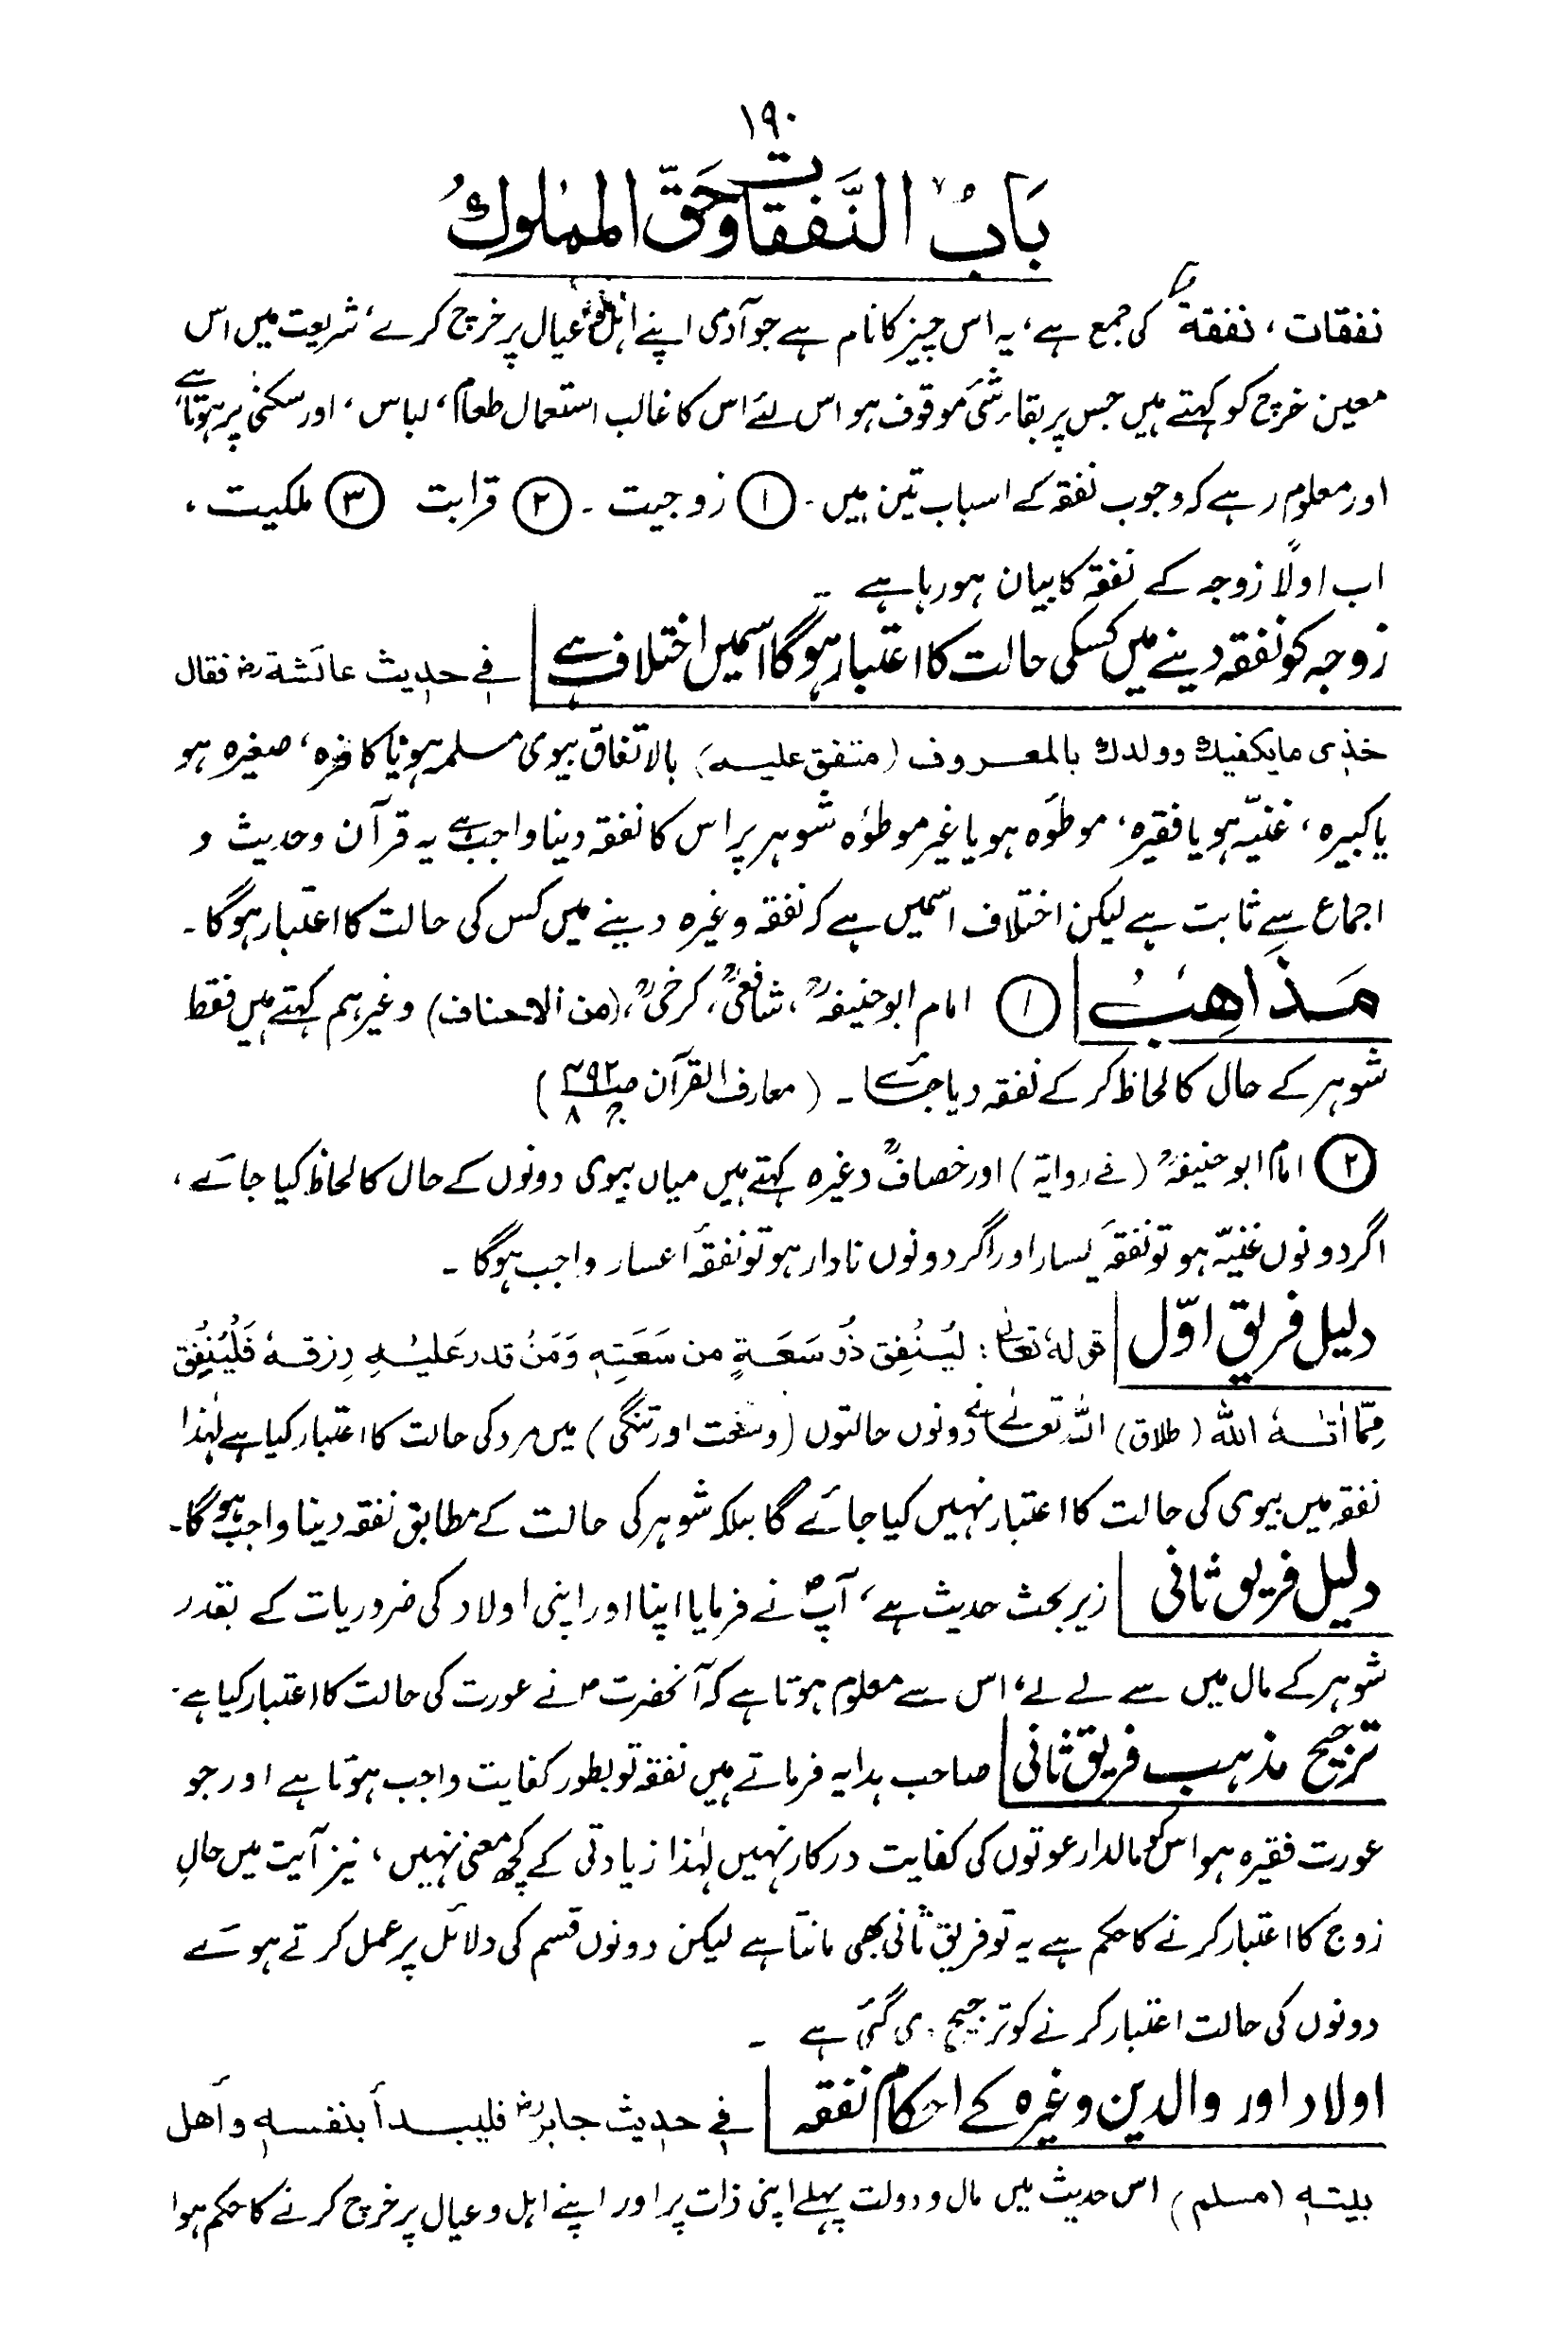 ۱۹۰
بَابُ النَّفَقَات وَحَقّ المملوك
نفقات ، نفقة کی جمع ہے، یہ اس چیز کا نام ہے جو آدمی اپنے اہل و عیال پر خرچ کرے، شریعت میں اس
معین خرچ کو کہتے ہیں جس پر بقاء شئ موقوف ہو اس لئے اس کا غالب استعمال طعام، لباس، اور سکنٰی پر ہوتا ہے
اور معلوم رہے کہ وجوب نفقہ کے اسباب تین ہیں ۔ ① زوجیت ۔ ② قرابت ③ ملکیت ،
اب اولًا زوجہ کے نفقہ کا بیان ہو رہا ہے ۔
زوجہ کو نفقہ دینے میں کسکی حالت کا اعتبار ہوگا اسمیں اختلاف ہے | فی حدیث عائشة رض فقال
خذی مایکفیك وولدك بالمعروف (متفق علیہ) بالاتفاق بیوی مسلمہ ہو یا کافرہ، صغیرہ ہو
یا کبیرہ، غنیّہ ہو یا فقیرہ، موطؤہ ہو یا غیر موطؤہ شوہر پر اس کا نفقہ دینا واجب ہے یہ قرآن وحدیث و
اجماع سے ثابت ہے لیکن اختلاف اسمیں ہے کہ نفقہ وغیرہ دینے میں کس کی حالت کا اعتبار ہوگا ۔
مَذاهِبُ | ① امام ابو حنیفہؒ ، شافعیؒ، کرخیؒ، (من الاحناف) وغیرہم کہتے ہیں فقط
شوہر کے حال کا لحاظ کر کے نفقہ دیا جائے گا ۔ ( معارف القرآن ص۴۹۲ ج۸ )
② امام ابو حنیفہؒ (فی روایة) اور خصافؒ وغیرہ کہتے ہیں میاں بیوی دونوں کے حال کا لحاظ کیا جائے ،
اگر دونوں غنیّہ ہو تو نفقۂ یسار اور اگر دونوں نادار ہو تو نفقۂ اعسار واجب ہوگا ۔
دلیل فریق اوّل | قولہٗ تعالیٰ : لِیُنْفِق ذُو سَعَةٍ من سَعَتِہٖ وَمَنْ قدر عَلیْہِ رِزقہٗ فَلْیُنْفِق
مِمَّا اٰتٰہُ اللّٰه (طلاق) اللہ تعالیٰ نے دونوں حالتوں (وسعت اور تنگی) میں مرد کی حالت کا اعتبار کیا ہے لہٰذا
نفقہ میں بیوی کی حالت کا اعتبار نہیں کیا جائے گا بلکہ شوہر کی حالت کے مطابق نفقہ دینا واجب ہوگا۔
دلیل فریق ثانی | زیر بحث حدیث ہے، آپؐ نے فرمایا اپنا اور اپنی اولاد کی ضروریات کے بقدر
شوہر کے مال میں سے لے لے، اس سے معلوم ہوتا ہے کہ آنحضرت ؐ نے عورت کی حالت کا اعتبار کیا ہے۔
ترجیح مذہب فریق ثانی | صاحب ہدایہ فرماتے ہیں نفقہ تو بطور کفایت واجب ہوتا ہے اور جو
عورت فقیرہ ہو اس کو مالدار عوتوں کی کفایت درکار نہیں لہٰذا زیادتی کے کچھ معنی نہیں ، نیز آیت میں حالِ
زوج کا اعتبار کرنے کا حکم ہے یہ تو فریق ثانی بھی مانتا ہے لیکن دونوں قسم کی دلائل پر عمل کرتے ہوئے
دونوں کی حالت اعتبار کرنے کو ترجیح دی گئی ہے ۔
اولاد اور والدین وغیرہ کے احکام نفقہ | فی حدیث جابر رض فلیبدأ بنفسہٖ وأھل
بیتہٖ (مسلم) اس حدیث میں مال و دولت پہلے اپنی ذات پر اور اپنے اہل و عیال پر خرچ کرنے کا حکم ہوا